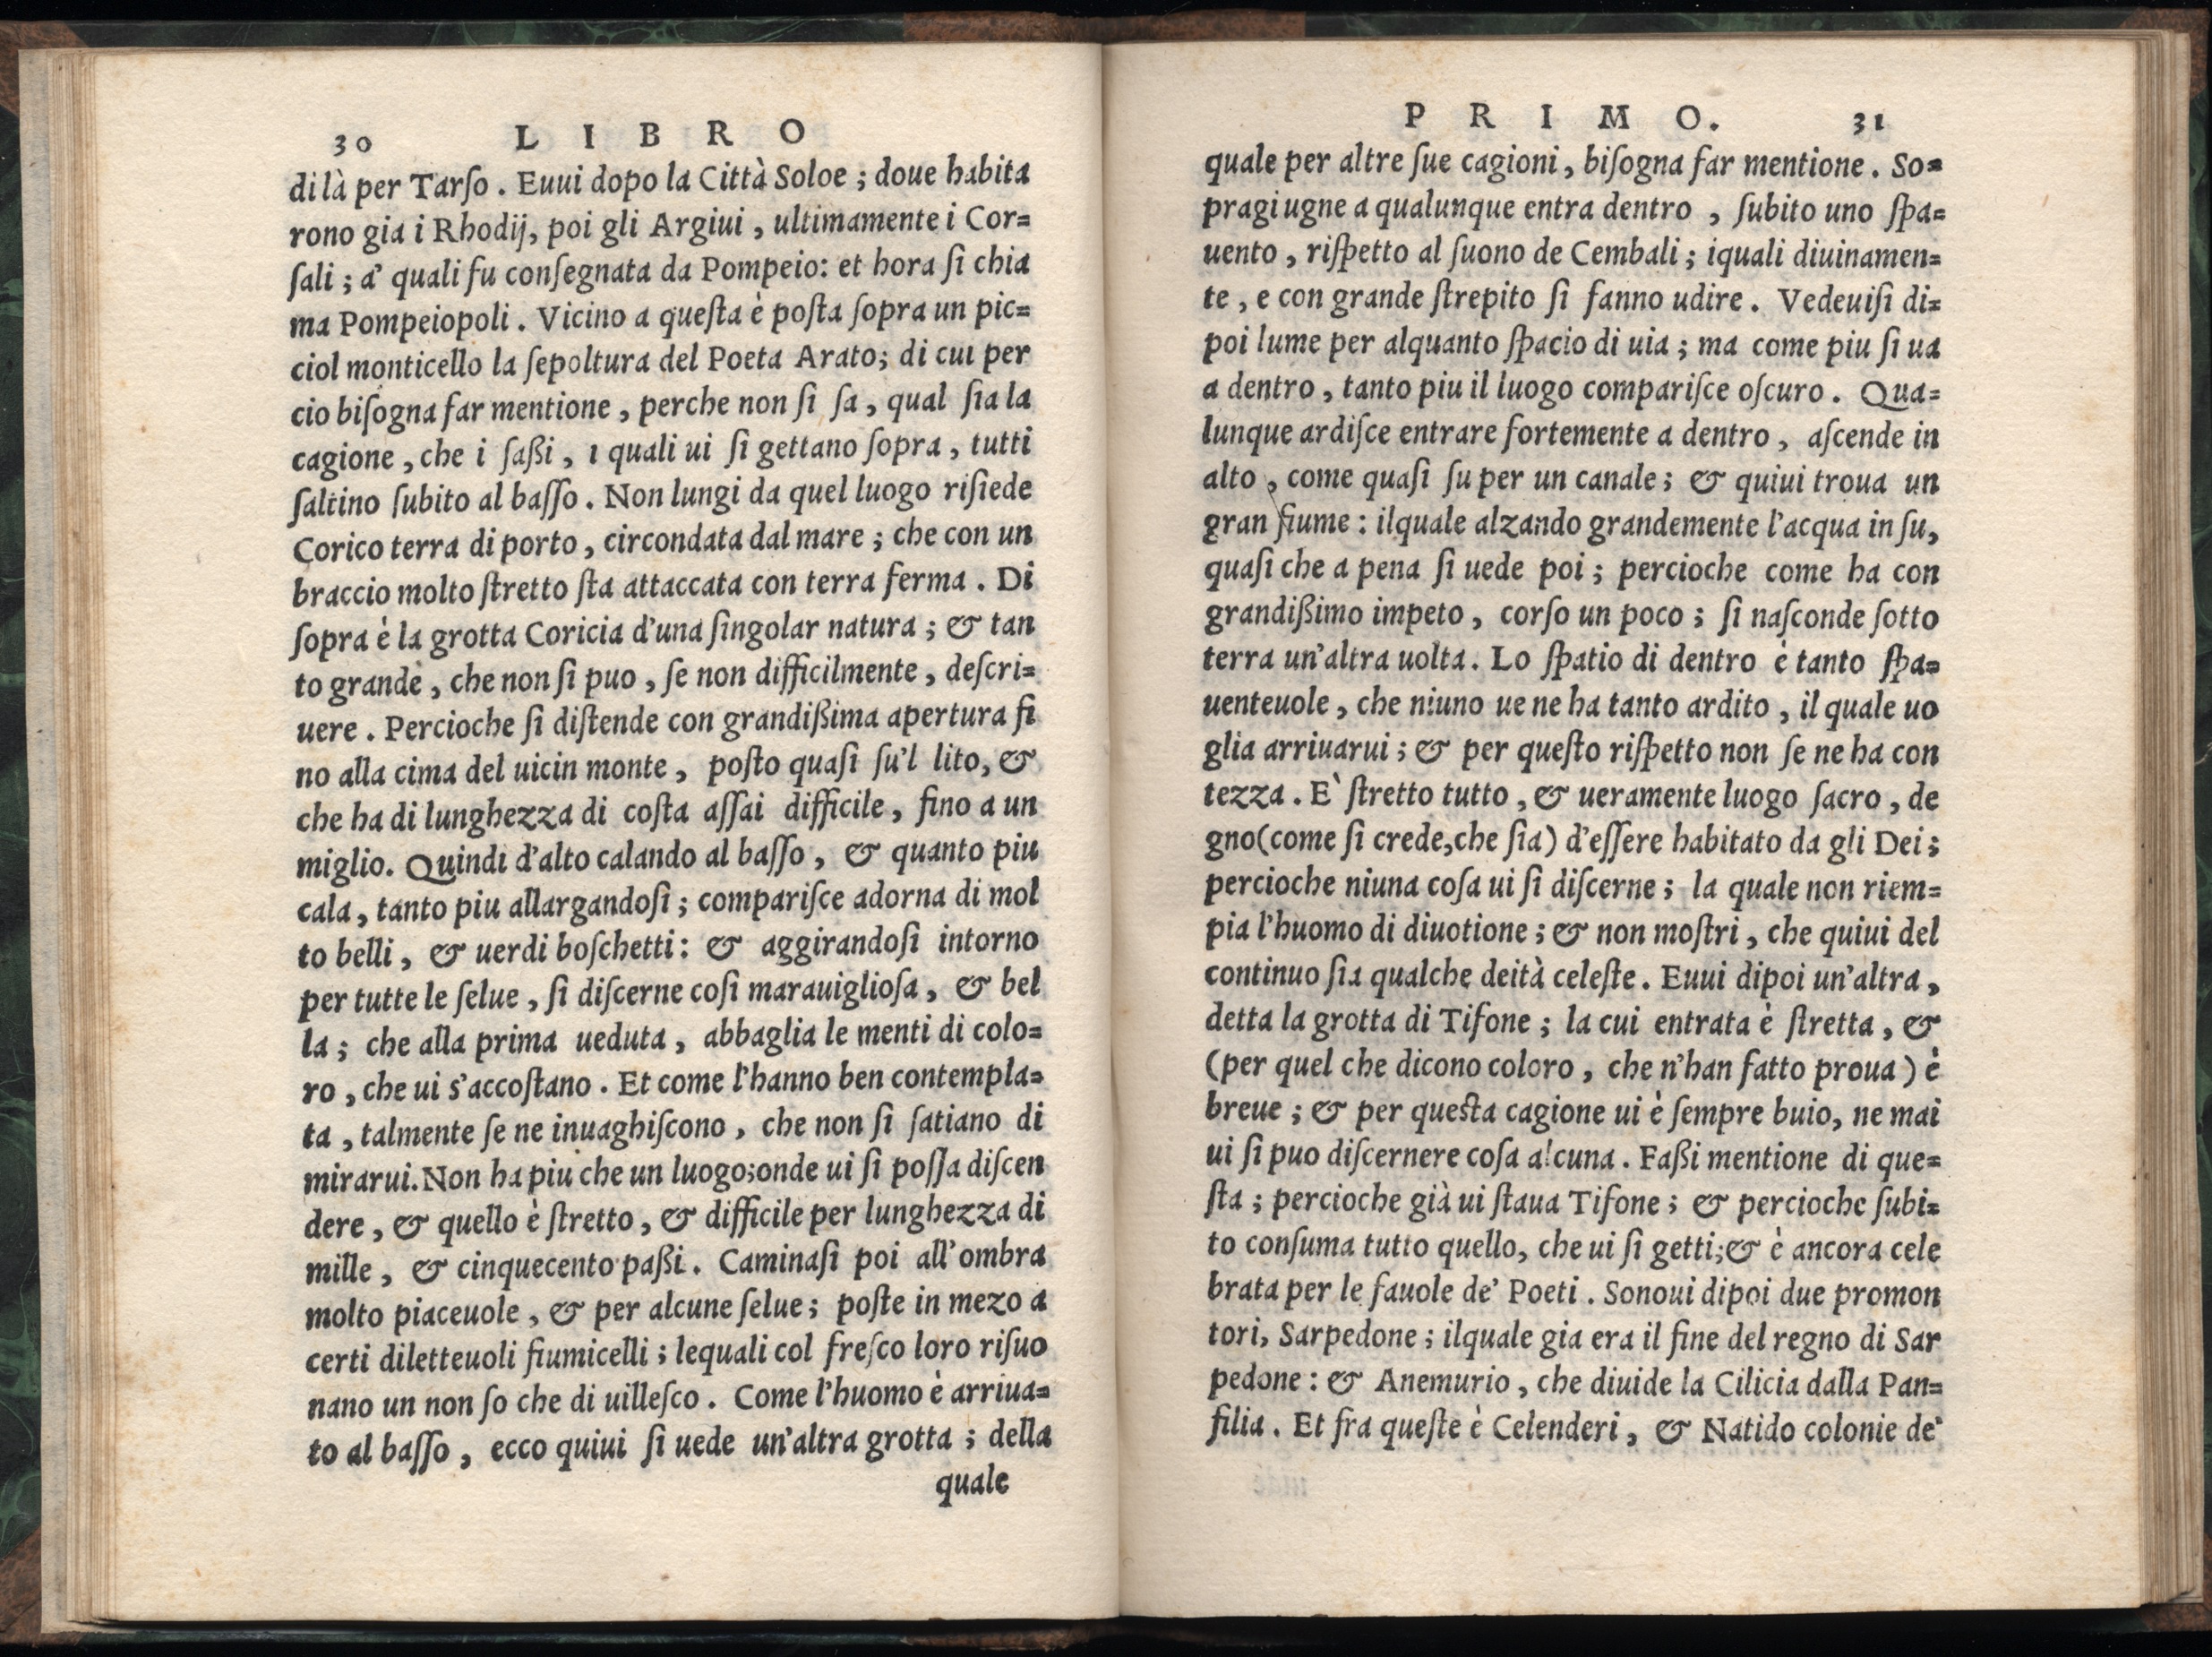 30 LIBRO
di là per Tarſo. Euui dopo la Città Soloe; doue habita
rono gia i Rhodij, poi gli Argiui, ultimamente i Cor=
ſali; a' quali fu conſegnata da Pompeio: et hora ſi chia
ma Pompeiopoli. Vicino a queſta è poſta ſopra un pic=
ciol monticello la ſepoltura del Poeta Arato; di cui per
cio biſogna far mentione, perche non ſi ſa, qual ſia la
cagione, che i ſaßi, i quali ui ſi gettano ſopra, tutti
ſaltino ſubito al baſſo. Non lungi da quel luogo riſiede
Corico terra di porto, circondata dal mare; che con un
braccio molto ſtretto ſta attaccata con terra ferma. Di
ſopra è la grotta Coricia d'una ſingolar natura; & tan
to grande, che non ſi puo, ſe non difficilmente, deſcri=
uere. Percioche ſi diſtende con grandißima apertura fi
no alla cima del uicin monte, poſto quaſi ſu'l lito, &
che ha di lunghezza di coſta aſſai difficile, fino a un
miglio. Quindi d'alto calando al baſſo, & quanto piu
cala, tanto piu allargandoſi; compariſce adorna di mol
to belli, & uerdi boſchetti: & aggirandoſi intorno
per tutte le ſelue, ſi diſcerne coſi marauiglioſa, & bel
la; che alla prima ueduta, abbaglia le menti di colo=
ro, che ui s'accoſtano. Et come l'hanno ben contempla=
ta, talmente ſe ne inuaghiſcono, che non ſi ſatiano di
mirarui. Non ha piu che un luogo; onde ui ſi poſſa diſcen
dere, & quello è ſtretto, & difficile per lunghezza di
mille, & cinquecento paßi. Caminaſi poi all'ombra
molto piaceuole, & per alcune ſelue; poſte in mezo a
certi diletteuoli fiumicelli; lequali col freſco loro riſuo
nano un non ſo che di uilleſco. Come l'huomo è arriua=
to al baſſo, ecco quiui ſi uede un'altra grotta; della
quale
PRIMO. 31
quale per altre ſue cagioni, biſogna far mentione. So=
pragiugne a qualunque entra dentro, ſubito uno ſpa=
uento, riſpetto al ſuono de Cembali; iquali diuinamen=
te, e con grande ſtrepito ſi fanno udire. Vedeuiſi di=
poi lume per alquanto ſpacio di uia; ma come piu ſi ua
a dentro, tanto piu il luogo compariſce oſcuro. Qua=
lunque ardiſce entrare fortemente a dentro, aſcende in
alto, come quaſi ſu per un canale; & quiui troua un
gran fiume: ilquale alzando grandemente l'acqua in ſu,
quaſi che a pena ſi uede poi; percioche come ha con
grandißimo impeto, corſo un poco; ſi naſconde ſotto
terra un'altra uolta. Lo ſpatio di dentro è tanto ſpa=
uenteuole, che niuno ue ne ha tanto ardito, il quale uo
glia arriuarui; & per queſto riſpetto non ſe ne ha con
tezza. E` ſtretto tutto, & ueramente luogo ſacro, de
gno (come ſi crede, che ſia) d'eſſere habitato da gli Dei;
percioche niuna coſa ui ſi diſcerne; la quale non riem=
pia l'huomo di diuotione; & non moſtri, che quiui del
continuo ſia qualche deità celeſte. Euui dipoi un'altra,
detta la grotta di Tifone; la cui entrata è ſtretta, &
(per quel che dicono coloro, che n'han fatto proua) è
breue; & per queſta cagione ui è ſempre buio, ne mai
ui ſi puo diſcernere coſa alcuna. Faßi mentione di que=
ſta; percioche già ui ſtaua Tifone; & percioche ſubi=
to conſuma tutto quello, che ui ſi getti; & è ancora cele
brata per le fauole de' Poeti. Sonoui dipoi due promon
tori, Sarpedone; ilquale gia era il fine del regno di Sar
pedone: & Anemurio, che diuide la Cilicia dalla Pan=
filia. Et fra queſte è Celenderi, & Natido colonie de'